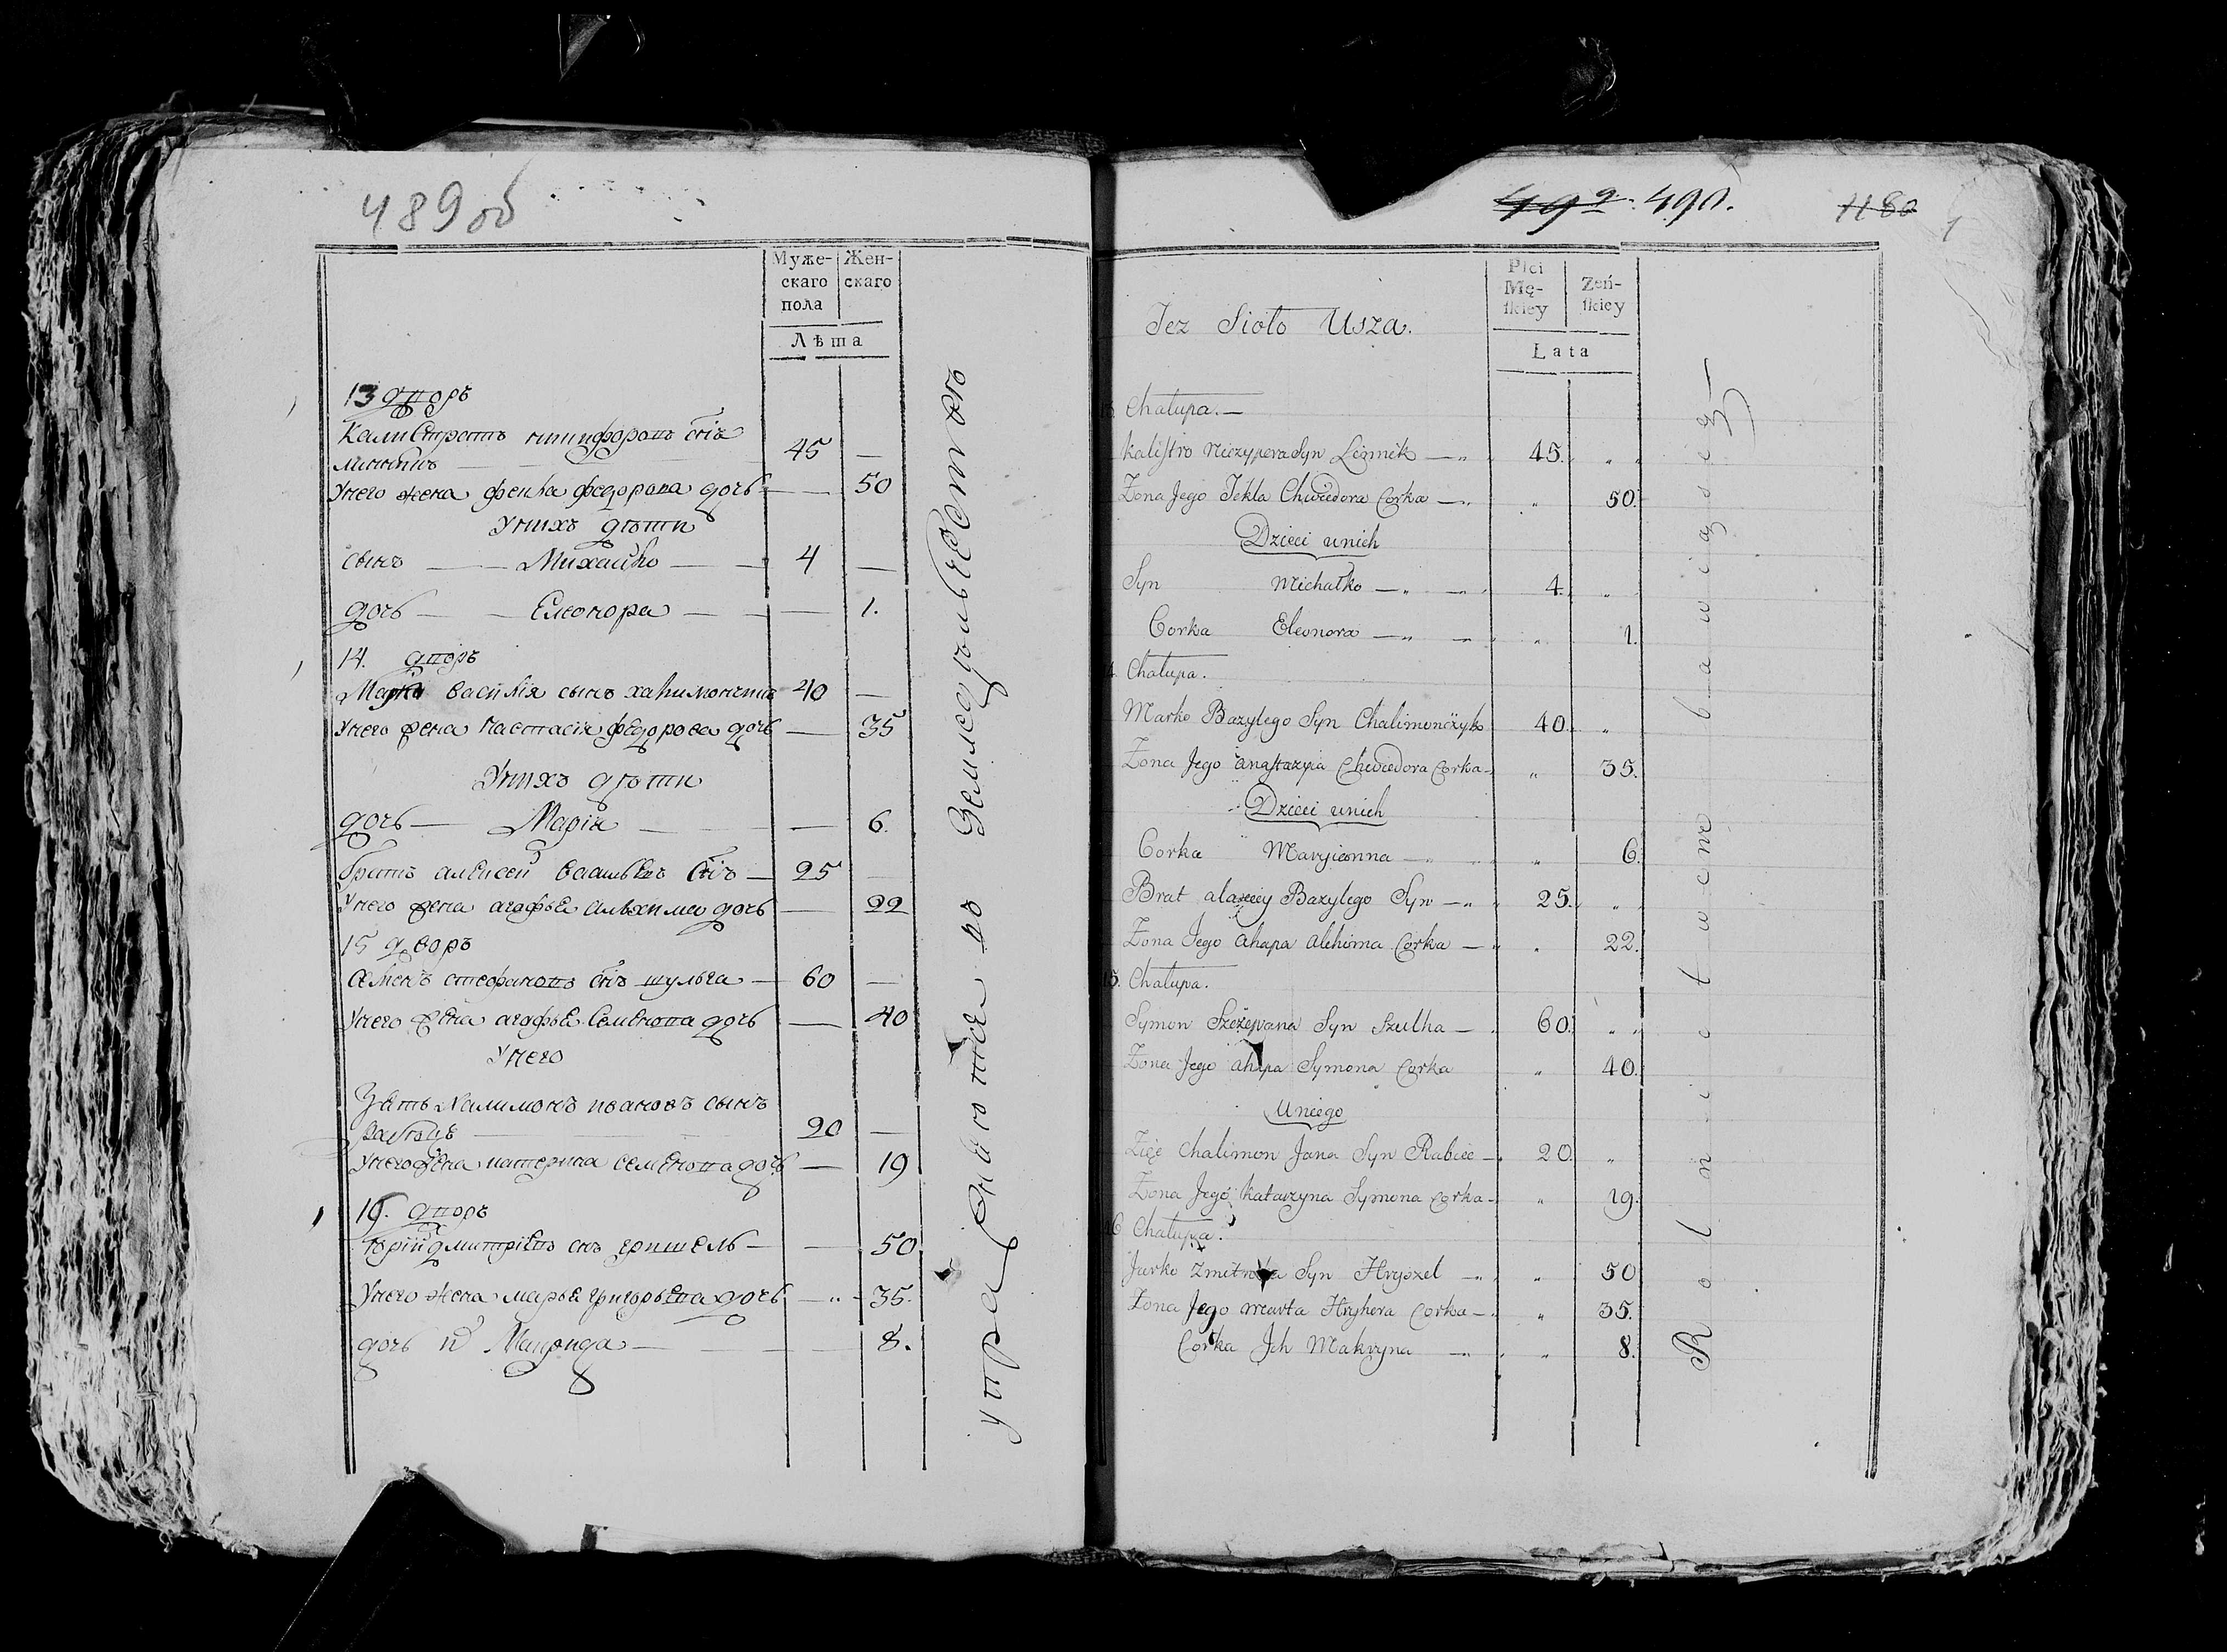 489об
Муже-
скаго
пола
Жен-
скаго
Лѣта
13 дворъ
Калистратъ никифоровъ снъ
45 —
У него жена фекла федорова дочь — 50
У них дѣти
сынъ — Михайко — 4 —
дочь — Елеонора — — 1.
14. дворъ
Марко василія сынъ халимончикъ 40 —
У него жена настасія федорова дочь — 35
У них дѣти
дочь — Марія — 6.
братъ алексей васильевъ снъ — 25 —
У него жена агафья алхима дочь — 22
15 дворъ
семенъ стефановъ снъ шульга — 60 —
У него жена агафья семенова дочь — 40
У него
Зять халимонъ ивановъ сынъ
рабецъ — 20 —
У него жена катерина семенова дочь — 19
16. дворъ
юрій дмитріевъ снъ гришель — — 50
У него жена марья григорьева дочь — „ — 35.
дочь их Макрида — — 8.
упражняются в земледѣльчестве
492. 490.
1180
Jez Sioło Usza.
Płci
Mę-
ſkiey
Zeń-
ſkiey
Lata
Chałupa. —
Kaliſtro Niczypera Syn Lizmik — „ 45. „ „
Zona Jego Tekla Chwiedora Corka — „ „ 50.
Dzieci unich
Syn Michałko — „ — „ 4. „
Corka Eleonora — „ — „ „ 1.
4. Chałupa.
Marko Bazylego Syn Chalimończyk 40. „
Zona Jego anaſtazyia Chwiedora Corka — „ 35.
Dzieci unich
Corka Maryianna — „ „ 6.
Brat alaxiey Bazylego Syn — „ 25. „
Zona Jego ahapa alchima Corka — „ „ 22.
15. Chałupa.
Symon Szczepana Syn Szulha — „ 60. „ „
Zona Jego ahapa Symona Corka „ 40.
Uniego
Zięć Chalimon Jana Syn Rabiec — 20. „
Zona Jego Katarzyna Symona Corka — „ 19.
16 Chałupa.
Jurko Zmitra Syn Hryszel — „ „ 50
Zona Jego Marta Hryhora Corka — „ „ 35.
Corka Jch Makryna — „ „ 8.
Rolnictwem bawią się